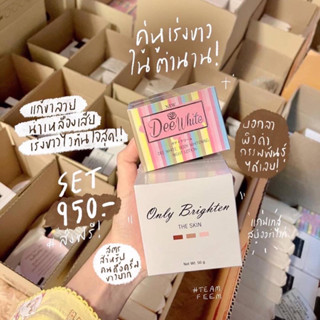 คู่เร่งขาว
ในตำนาน!
แก้ขาลาย
น่าเหลืองเสีย
เร่งขาวไวทันใจสุด!!
Dee White
บอกลา
ผิวดำ
กรรมพันธุ์
ได้เลย!
SET
950.-
ส่งฟรี!
Only Brighten
THE SKIN
Net Wt. 50 g
สูตร
สำหรับ
คนดื้อครีม
ขาวยาก
#TEAM
FEEM